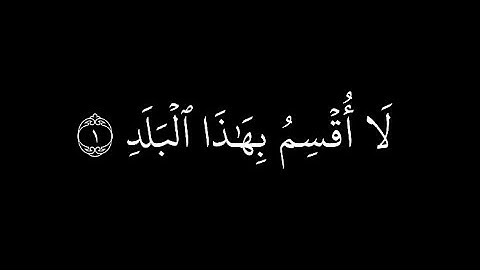 لَا أُقْسِمُ بِهَٰذَا ٱلْبَلَدِ ١